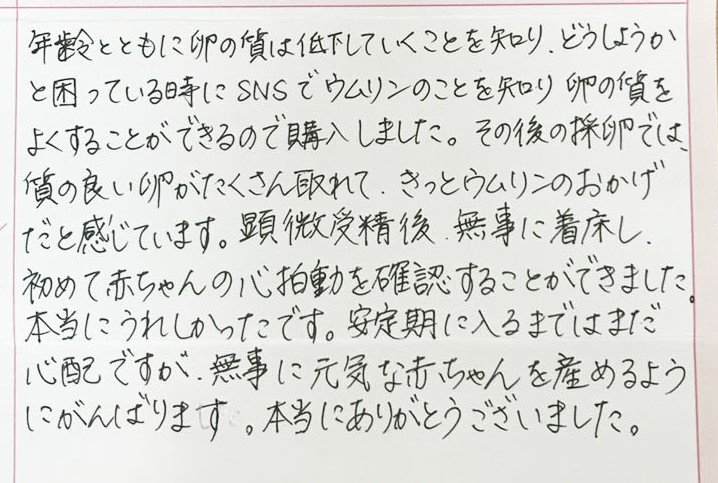 年齢とともに卵の質は低下していくことを知り、どうしようか
と困っている時にSNSでウムリンのことを知り卵の質を
よくすることができるので購入しました。その後の採卵では、
質の良い卵がたくさん取れて、きっとウムリンのおかげ
だと感じています。顕微受精後、無事に着床し、
初めて赤ちゃんの心拍動を確認することができました。
本当にうれしかったです。安定期に入るまではまだ
心配ですが、無事に元気な赤ちゃんを産めるよう
にがんばります。本当にありがとうございました。